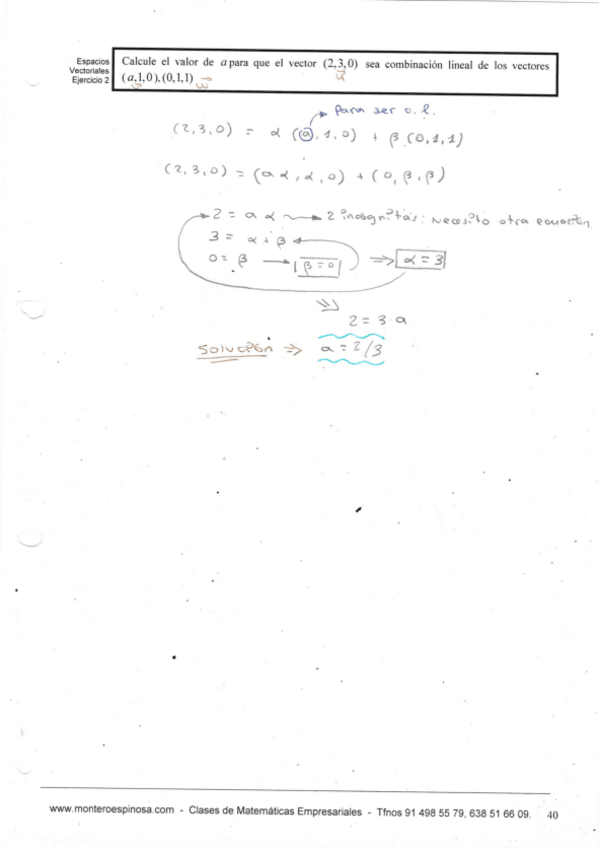 Espacios
Vectoriales
Ejercicio 2
Calcule el valor de a para que el vector (2,3,0) sea combinación lineal de los vectores
(a,1,0),(0,1,1)
u
v
w
Para ser c.l.
(2,3,0) = α (a,1,0) + β (0,1,1)
(2,3,0) = (a α, α, 0) + (0, β, β)
2 = a α → 2 incógnitas: Necesito otra ecuación.
3 = α + β
0 = β → β = 0 ⇒ α = 3
2 = 3·a
Solución ⇒ a = 2/3
www.monteroespinosa.com - Clases de Matemáticas Empresariales - Tfnos 91 498 55 79, 638 51 66 09. 40